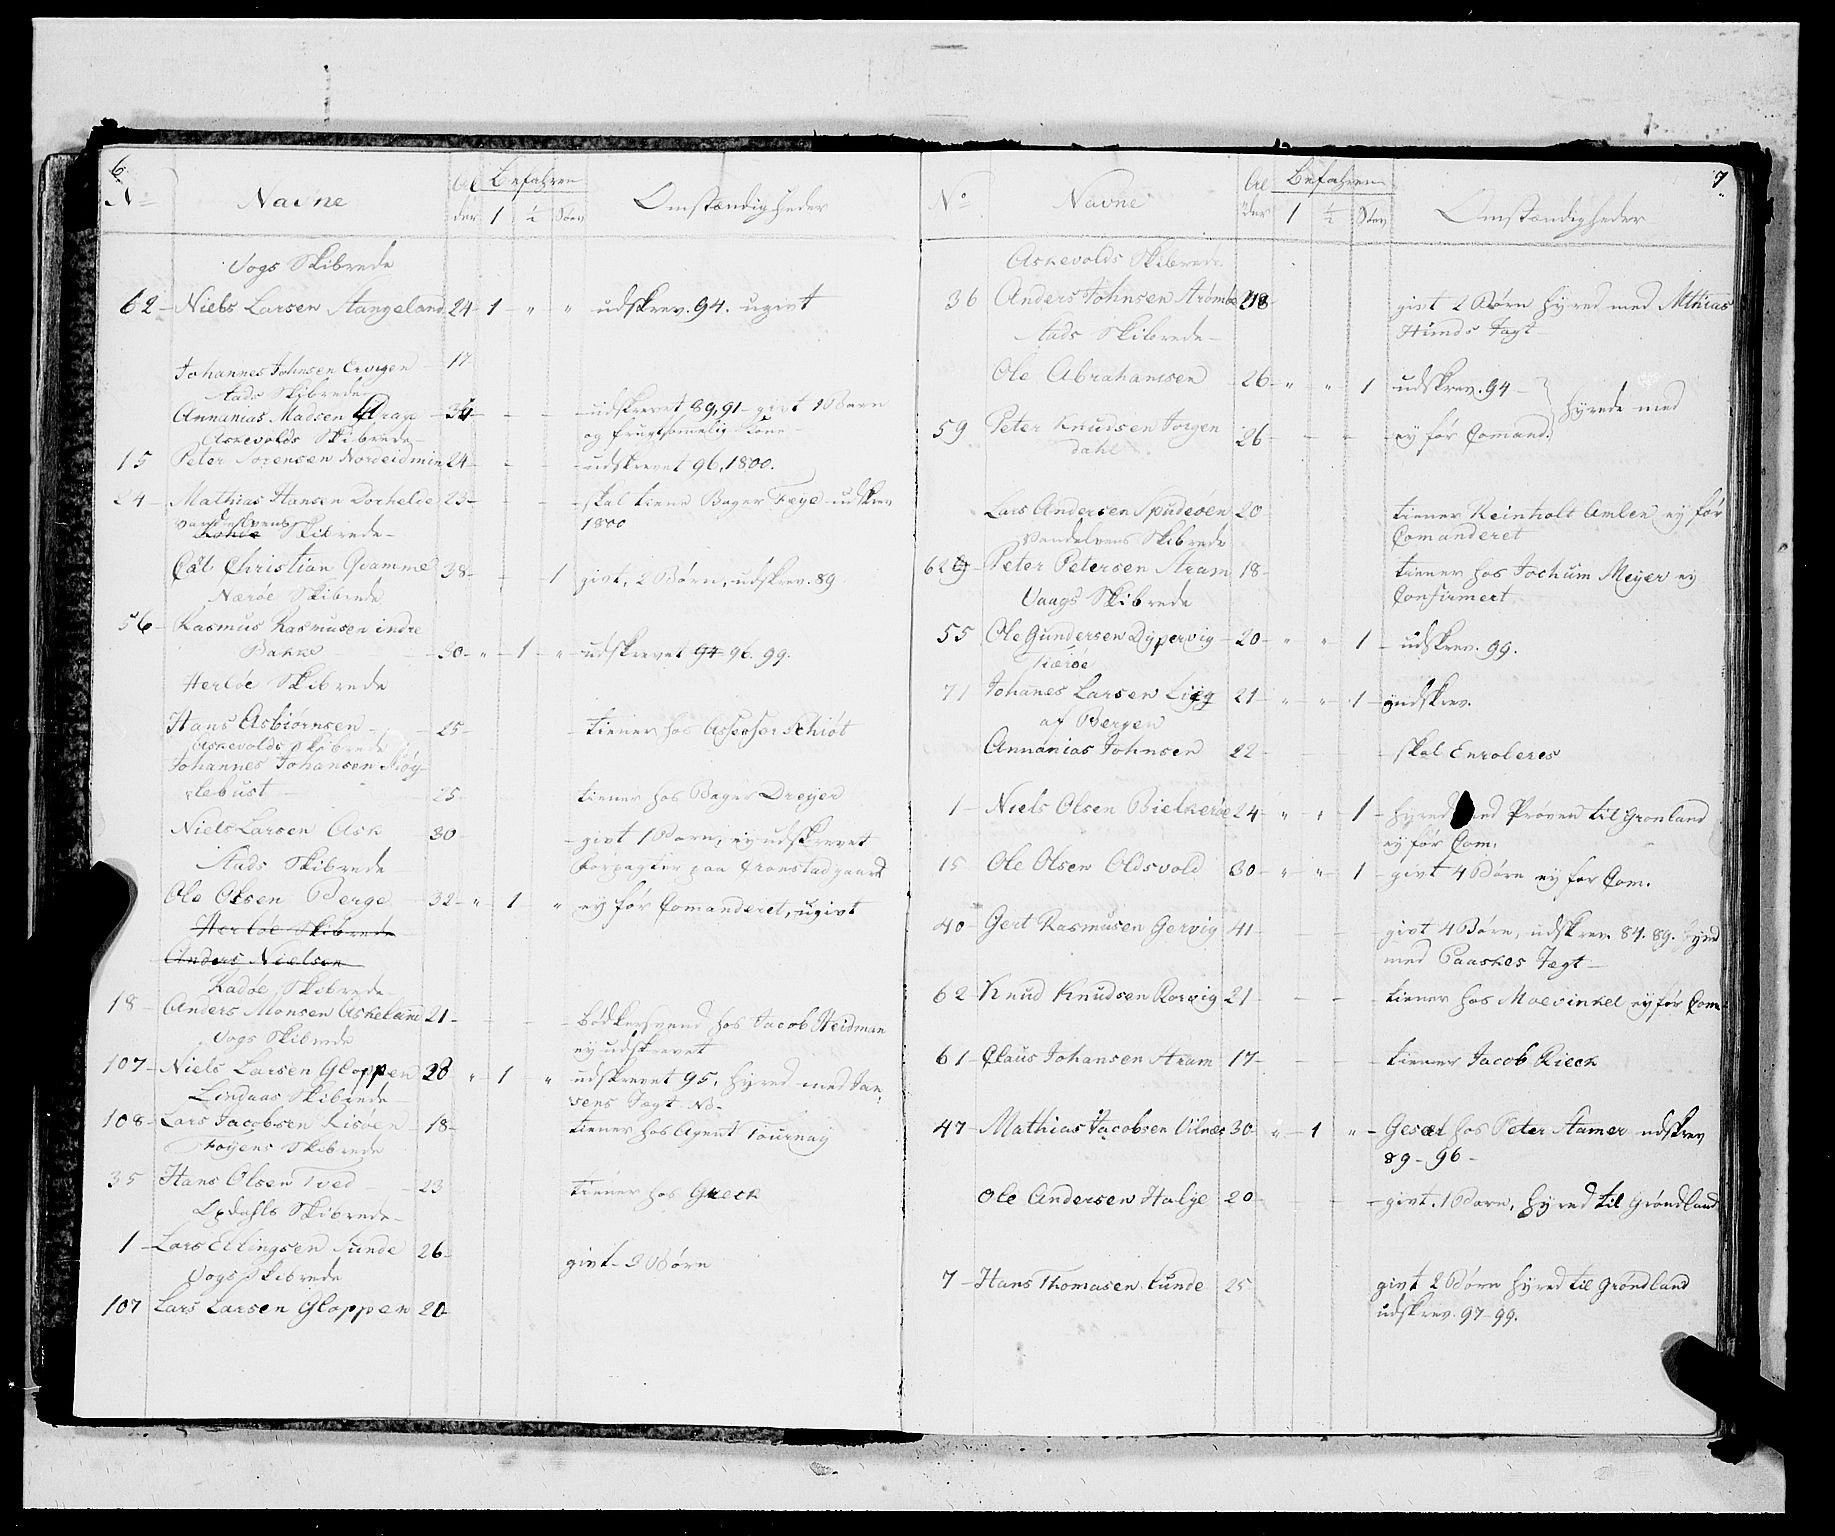 6.
No Navne Alder Befahren 1 ½ Søev Omstændigheder
Vogs Skibrede
62 - Niels Larsen Stangeland 24 - 1 - " " udskrev. 94. ugivt
Johannes Johnsen Ervigen - 17
Stads Skibrede
Annanias Madsen Drage - 34 - - - udskrevet 89, 91 - givt 1 Barn
og frugtsomelig Kone -
Askevolds Skibrede -
15 Peter Sørensen Nordeidmin 24 - - - udskrevet 96, 1800.
24 - Mathias Hansen Dorhelde 23 - - - skal tiene Bager Feye - udskrev
1800
Vandelvens Skibrede -
Cal Christian Qvamme 38 - - 1 givt, 2 Børn, udskrev. 89
Nærøe Skibrede
56 - Rasmus Rasmusen indre
Bakke - 30 - " - 1 - " - udskrevet 94 96. 99.
Herløe Skibrede
Hans Asbiørnsen - 25 - tiener hos Assessor Schiøt
Askevolds Skibrede
Johannes Johansen Kiøg-
stebust - 25 tiener hos Bager Dreyer
Niels Larsen Ask 30 - givt 1 Barn, ey udskrevet
forpagter paa Cronstad gaard
Stads Skibrede -
Ole Olsen Berge - 32 - " - 1 " ey før Comanderet, ugivt
Herløe Skibrede
Anders Nielsen
Radøe Skibrede -
18 - Anders Monsen Askeland 21 - - - Bødkersvend hos Jacob Heidman
ey udskrevet
Vogs Skibrede
107 - Niels Larsen Gloppen 28 " - 1 - " udskrevet 95. hyred med Jan-
sens Jægt No -
Lindaas Skibrede -
108 - Lars Jacobsen Risøen - 18 - tiener hos Agent Tournay
Støyens Skibrede
35 Hans Olsen Tved - 23 tiener hos Grieck
Opdahls Skibrede -
1 - Lars Ellingsen Sunde 26 - givt - 3 Børn
Vogs Skibrede
107 Lars Larsen Gloppen 20 -
7
No Navne Alder Befahren 1 ½ Søev Omstændigheder
Askevolds Skibrede
36 Anders Johnsen Strømbe 48 - givt 2 Børn hyred med Mthias
Hunds Jagt
Stads Skibrede -
Ole Abrahamsen - 26 - " - " - 1 - udskrev. 94 -
hyrede med
59 - Peter Knudsen Jorgen
dahl 26 - - " - ey før Comand.
Lars Andersen Spudeøen 20 - tiener Reinholt Amlen ey før
Comanderet
Vandelvens Skibrede
62 - Peter Petersen Aram 18 - tiener hos Jochum Meyer ey
Confirmert
Vaags Skibrede
55 Ole Gundersen Dypervig 20 - " " 1 - udskrev. 99.
Kiærøe
71 Johanes Larsen Liyg 21 - " - " - 1 - yndskrev.
af Bergen
Annanias Johnsen 22 - - - skal Enroleres
1 - Niels Olsen Bielkerøe 24 - " - " - 1 - hyred med Prøven til Grønland
ey før Com.
15 Ole Olsen Oldsvold 30 - " - " - 1 - givt 4 Børn ey før Com.
40 - Gert Rasmusen Gervig 41 - - - givt 4 Børn, udskrev. 84. 89. hyred
med Paaskes Jegt -
62 - Knud Knudsen Rorvig 21 - - - tiener hos Moevinkel ey før Com-
61 - Claus Johansen Aram 17 - - - tiener Jacob Rieck
47 - Mathias Jacobsen Vilnes 30 - " - 1 " - Gesæl hos Peter Stamer udskrev
89 - 96 -
Ole Andersen Halge 20 - - - givt. 1 Barn, hyred til Grøndland
7 - Hans Thomasen Sunde 25 givt 2 Børn hyred til Grøndland
udskrev. 97 - 99.